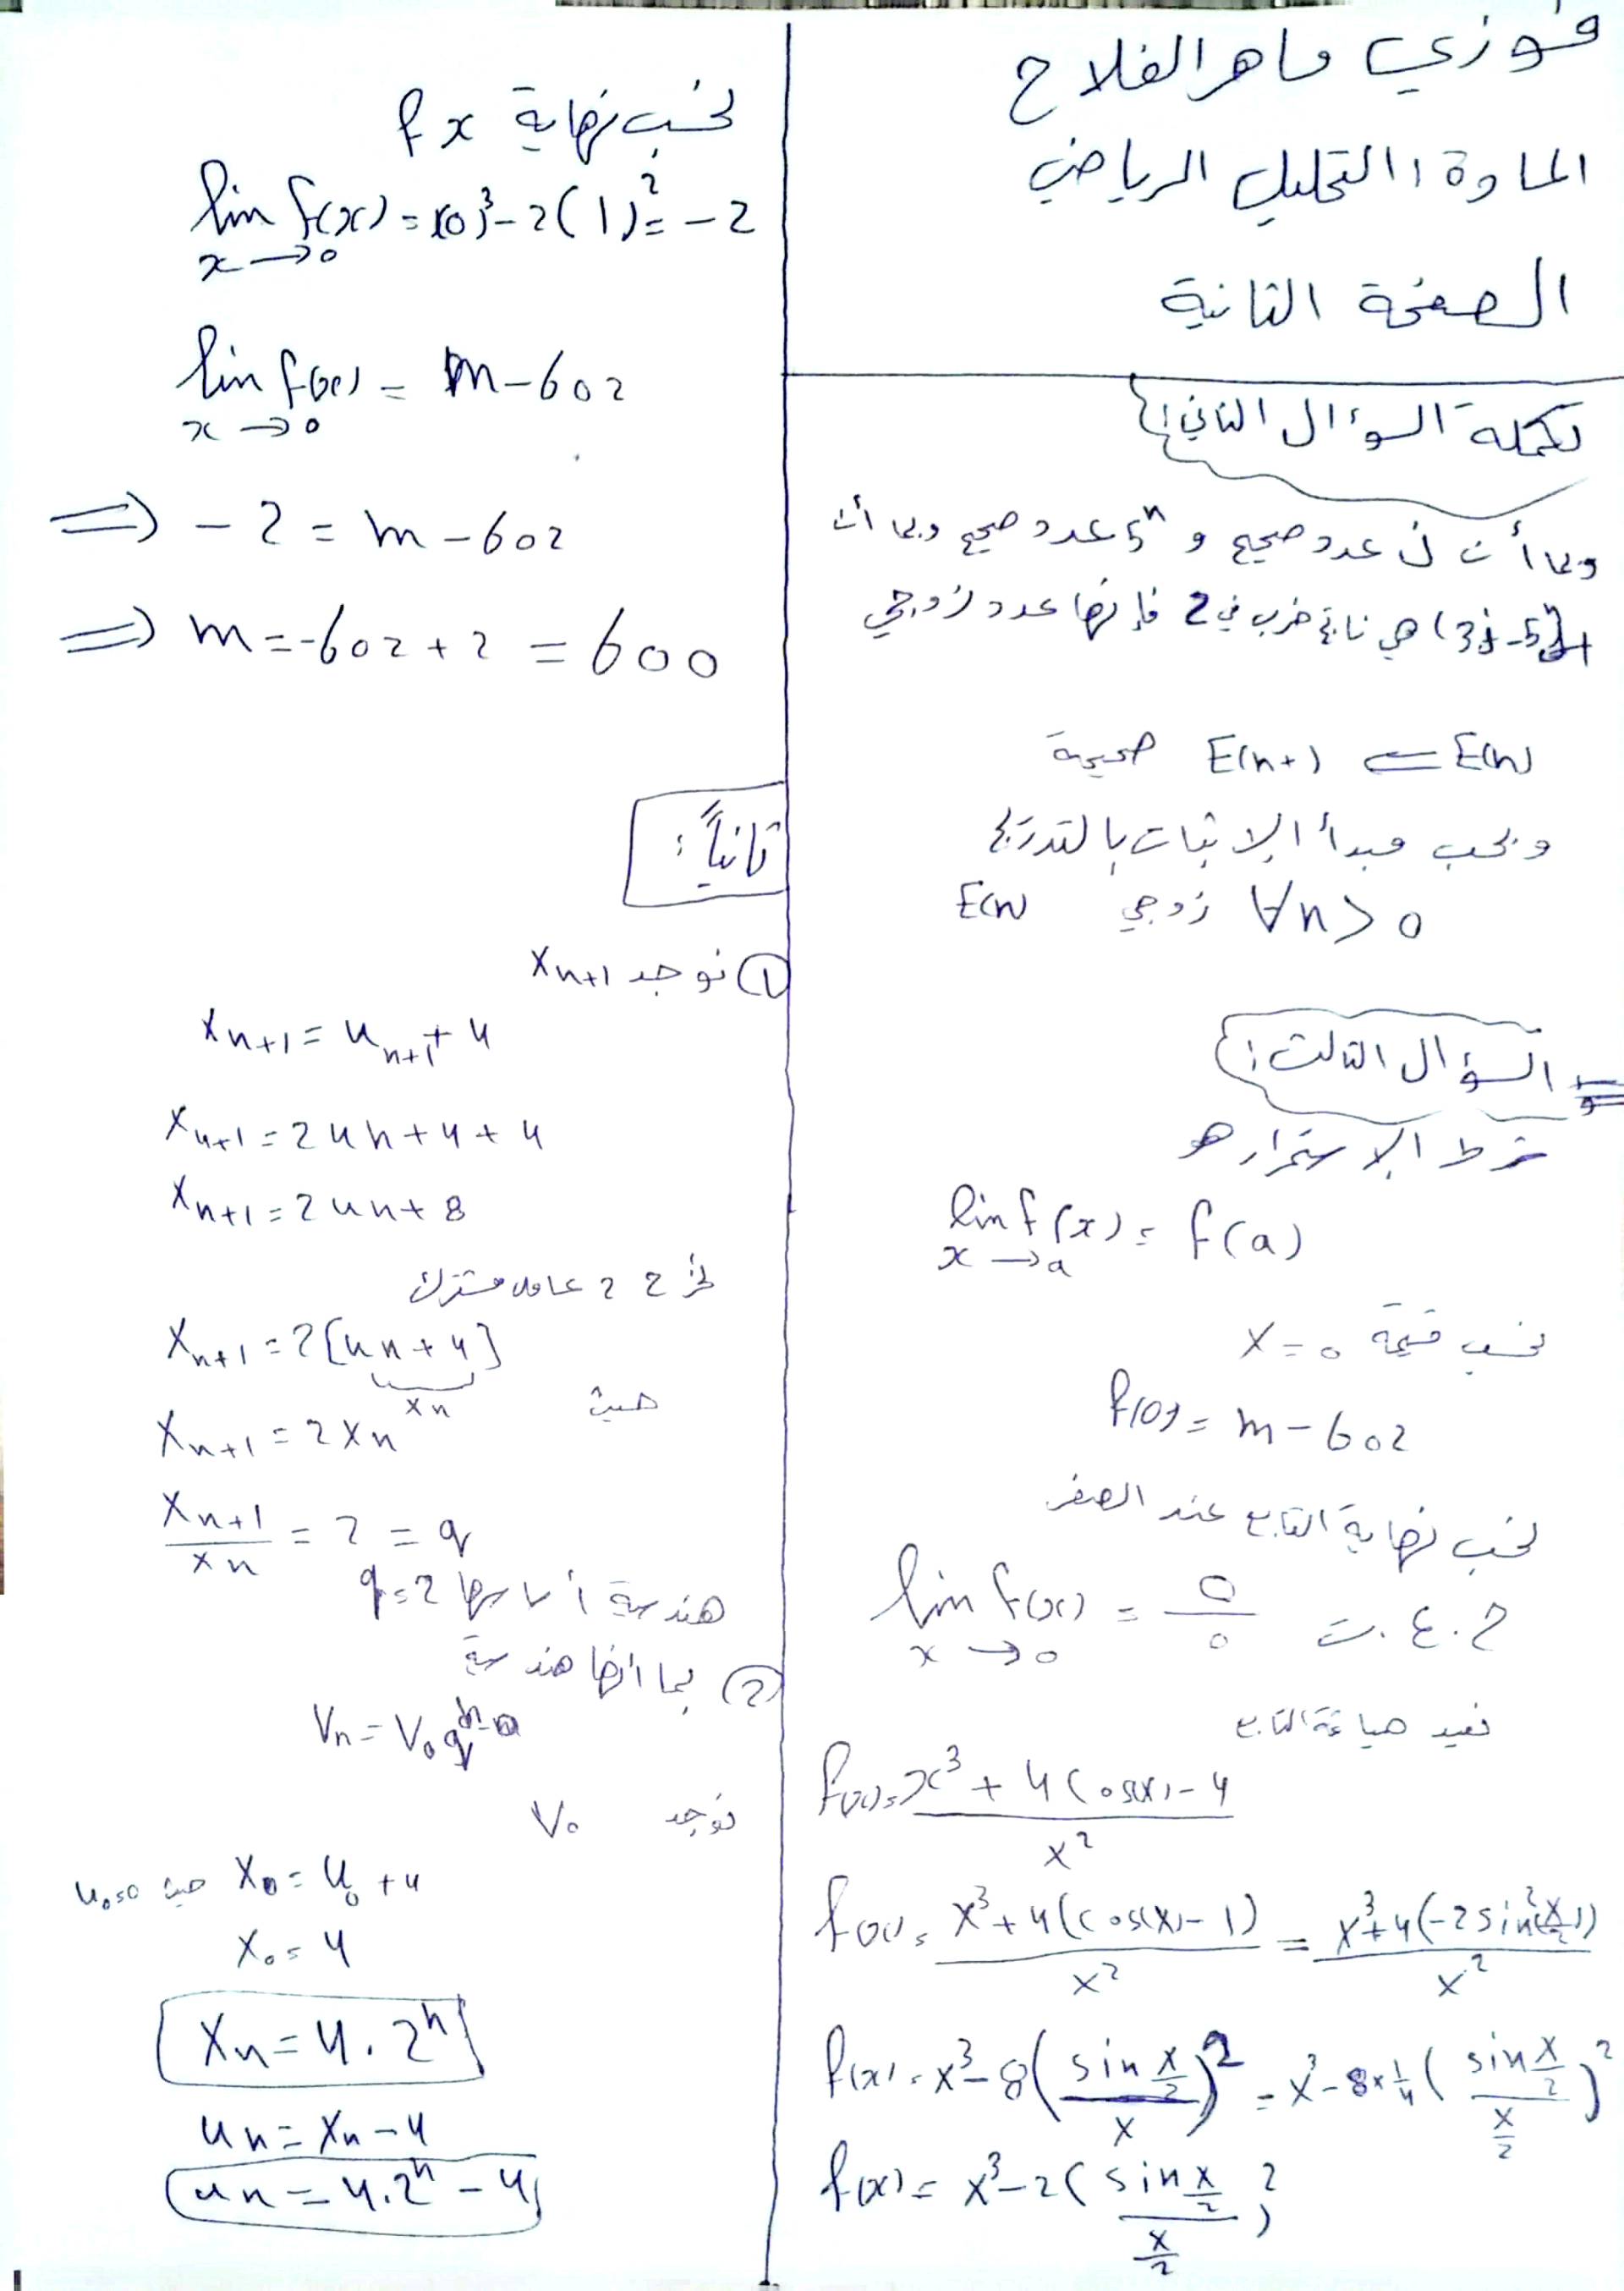 فوزي ماهر الفلاح
المادة: التحليل الرياضي
الصفحة الثانية
تكملة السؤال الثاني:
وبما أن ن عدد صحيح و 5^n عدد صحيح وبما أن
هي ناتج ضرب في 2 فإنها عدد زوجي
E(n) ⇐ E(n+1) صحيحة
وبحسب مبدأ الإثبات بالتدريج
∀n > 0 زوجي E(n)
السؤال الثالث:
شرط الاستمرار هو
lim f(x) = f(a)
x→a
نحسب قيمة x = 0
f(0) = m - 602
نحسب نهاية التابع عند الصفر
lim f(x) = 0/0 ح.ع.ت
x→0
نعيد صياغة التابع
f(x) = (x³ + 4cos(x) - 4)/x²
f(x) = (x³ + 4(cos(x) - 1))/x² = (x³ + 4(-2 sin²(x/2)))/x²
f(x) = x³ - 8((sin x/2)/x)² = x³ - 8×1/4((sin x/2)/(x/2))²
f(x) = x³ - 2((sin x/2)/(x/2))²
نحسب نهاية f x
lim f(x) = (0)³ - 2(1)² = -2
x→0
lim f(x) = m - 602
x→0
⇒ -2 = m - 602
⇒ m = -602 + 2 = 600
ثانياً:
① نوجد x_{n+1}
x_{n+1} = u_{n+1} + 4
x_{n+1} = 2u_n + 4 + 4
x_{n+1} = 2u_n + 8
نخرج 2 عامل مشترك
x_{n+1} = 2[u_n + 4]
x_n حيث
x_{n+1} = 2x_n
x_{n+1}/x_n = 2 = q
هندسية أساسها q = 2
② بما أنها هندسية
V_n = V_0 q^{n-0}
نوجد V_0
x_0 = u_0 + 4 حيث u_0 = 0
x_0 = 4
x_n = 4 . 2^n
u_n = x_n - 4
u_n = 4 . 2^n - 4